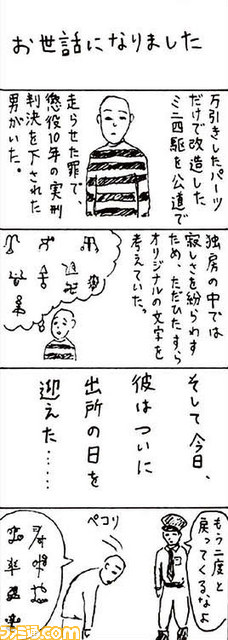 お世話になりました
万引きしたパーツ
だけで改造した
ミニ四駆を公道で
走らせた罪で、
懲役10年の実刑
判決を下された
男がいた。
独房の中では
寂しさを紛らわす
ため、ただひたすら
オリジナルの文字を
考えていた。
そして今日、
彼はついに
出所の日を
迎えた……
もう二度と
戻ってくるなよ
ペコリ
ファミ通.com